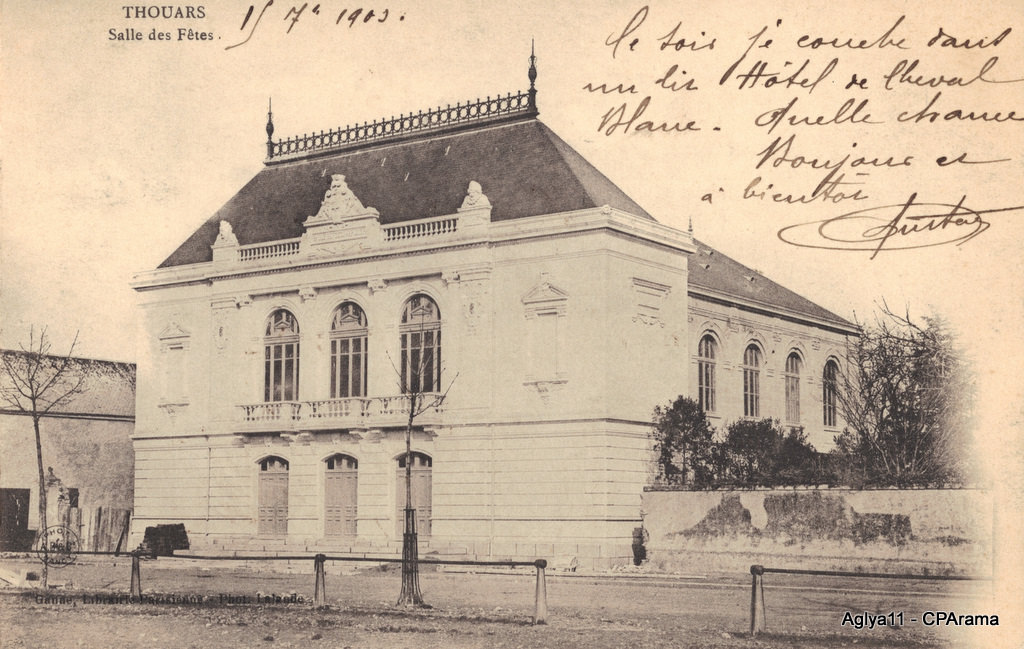 THOUARS
Salle des Fêtes.
15 7b 1903.
Ce soir je couche dans
un lit Hôtel de Cheval
Blanc. Quelle chance
Bonjour et
à bientôt
Gande, Librairie Parisienne - Phot. Lalande
Aglya11 - CPArama